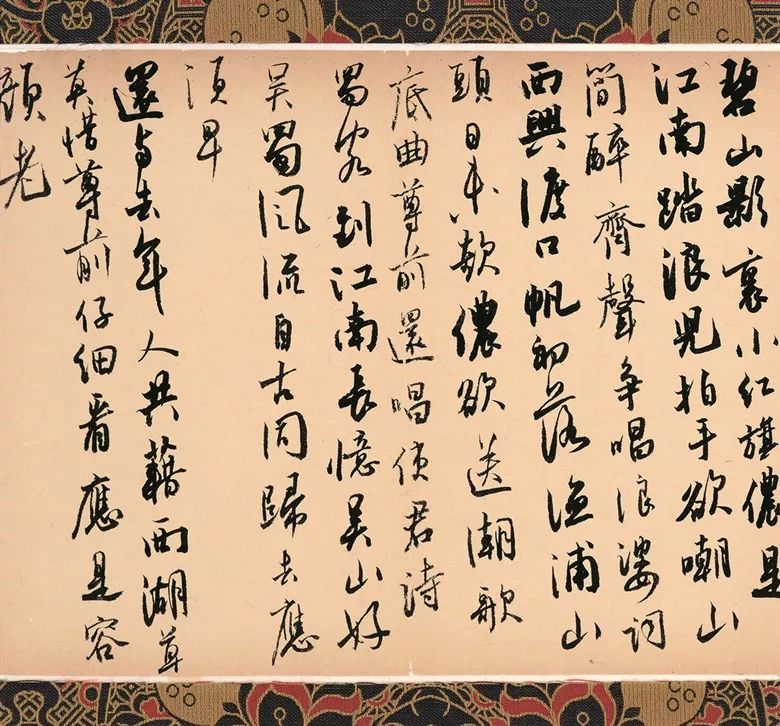 碧山影裏小红旗儂是
江南踏浪兒拍手欲嘲山
簡醉齊聲争唱浪婆词
西興渡口帆初落渔浦山
頭日未欹儂欲送潮歌
底曲尊前還唱使君诗
蜀客到江南長憶吴山好
吴蜀風流自古同歸去應
須早
還与去年人共藉西湖草
莫惜尊前仔细看應是容
顔老